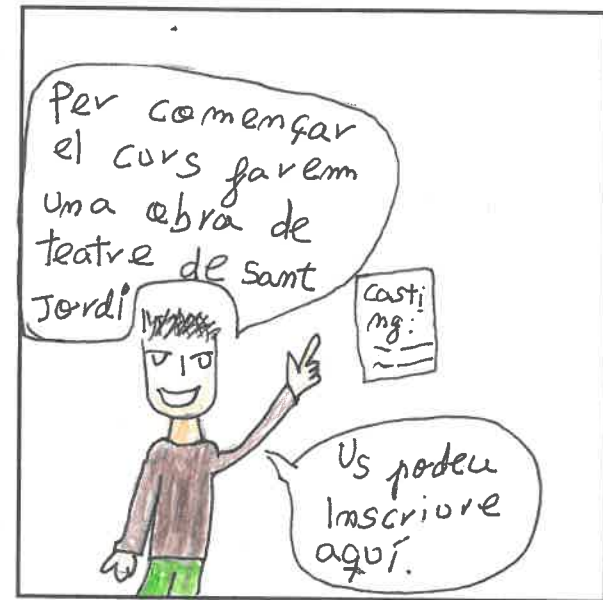 Per començar
el curs farem
una obra de
teatre de Sant
Jordi
casti
ng:
Us podeu
Inscriure
aquí.